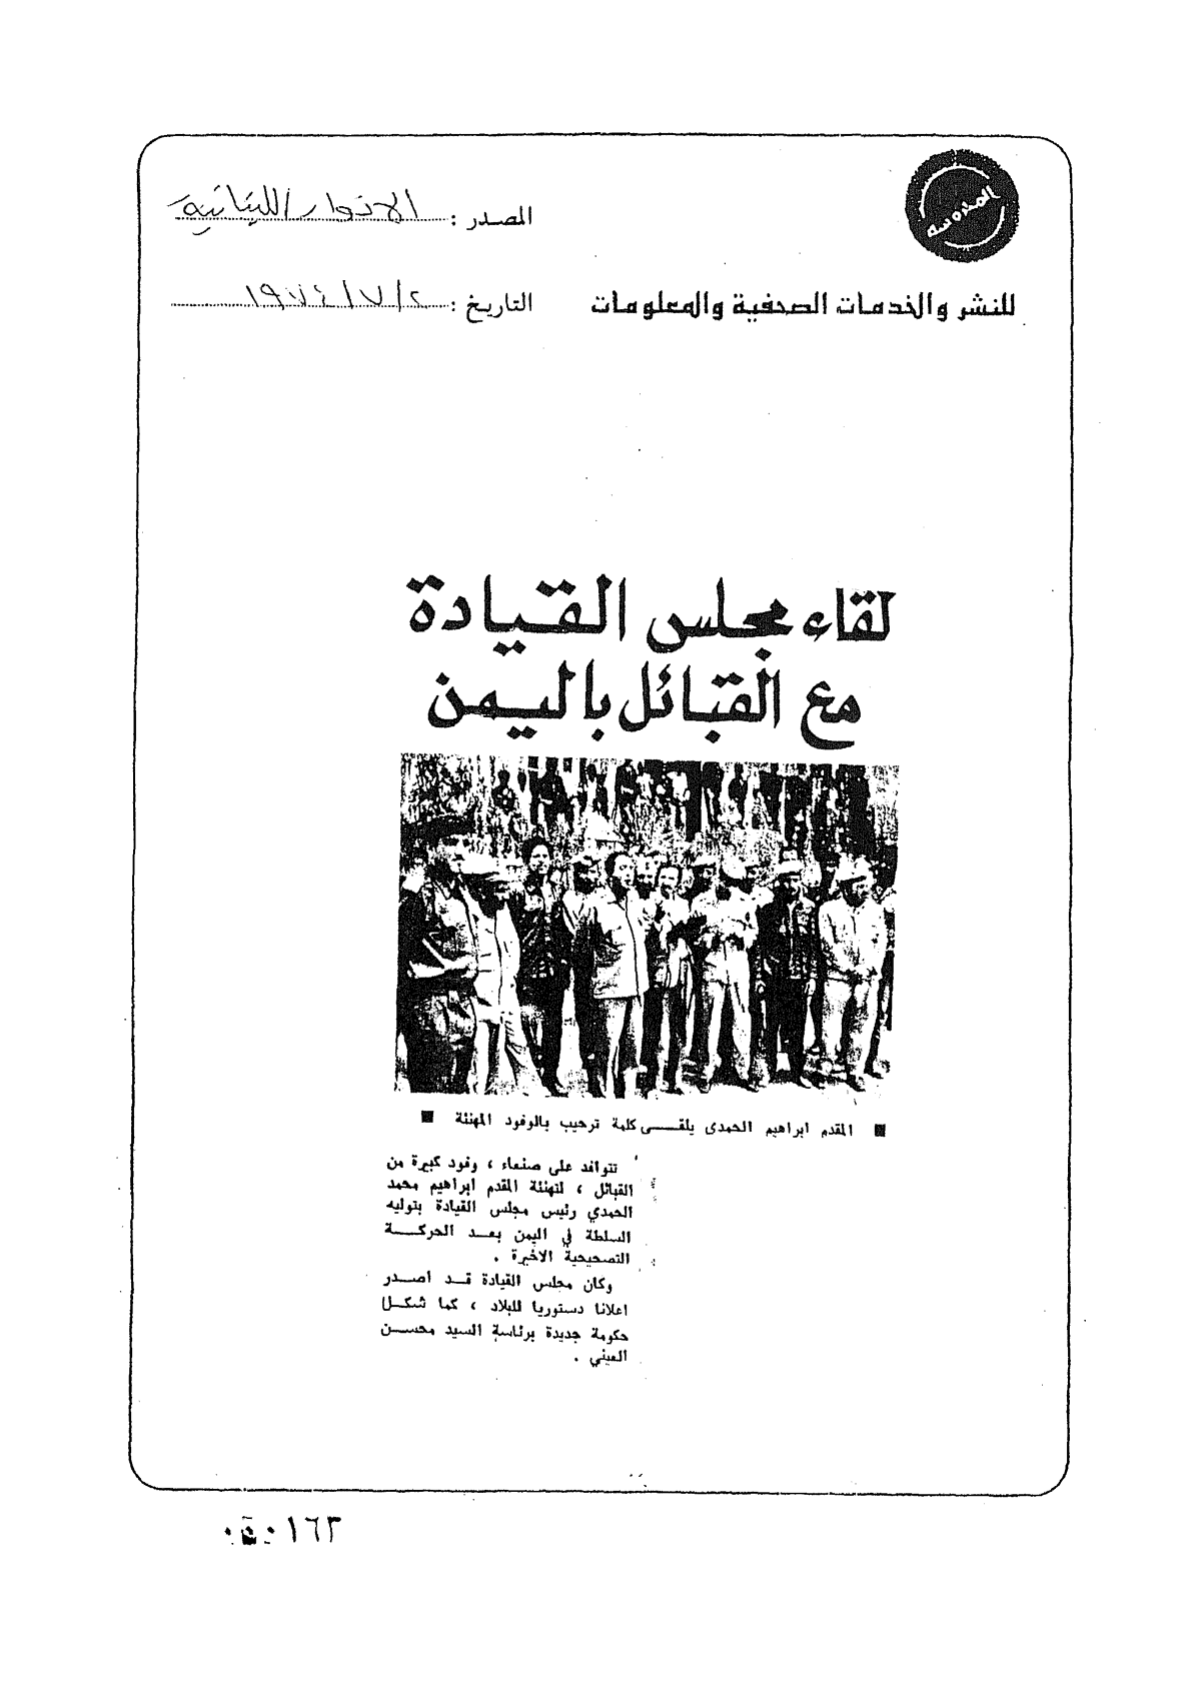 المدرسه
المصدر : الانوار اللبنانيه
للنشر والخدمات الصحفية والمعلومات
التاريخ : ٢/٧/١٩٧٤
لقاء مجلس القيادة
مع القبائل باليمن
■ المقدم ابراهيم الحمدى يلقى كلمة ترحيب بالوفود المهنئة ■
تتوافد على صنعاء ، وفود كبيرة من
القبائل ، لتهنئة المقدم ابراهيم محمد
الحمدي رئيس مجلس القيادة بتوليه
السلطة في اليمن بعد الحركة
التصحيحية الاخيرة .
وكان مجلس القيادة قد اصدر
اعلانا دستوريا للبلاد ، كما شكل
حكومة جديدة برئاسة السيد محسن
العيني .
١٦٣